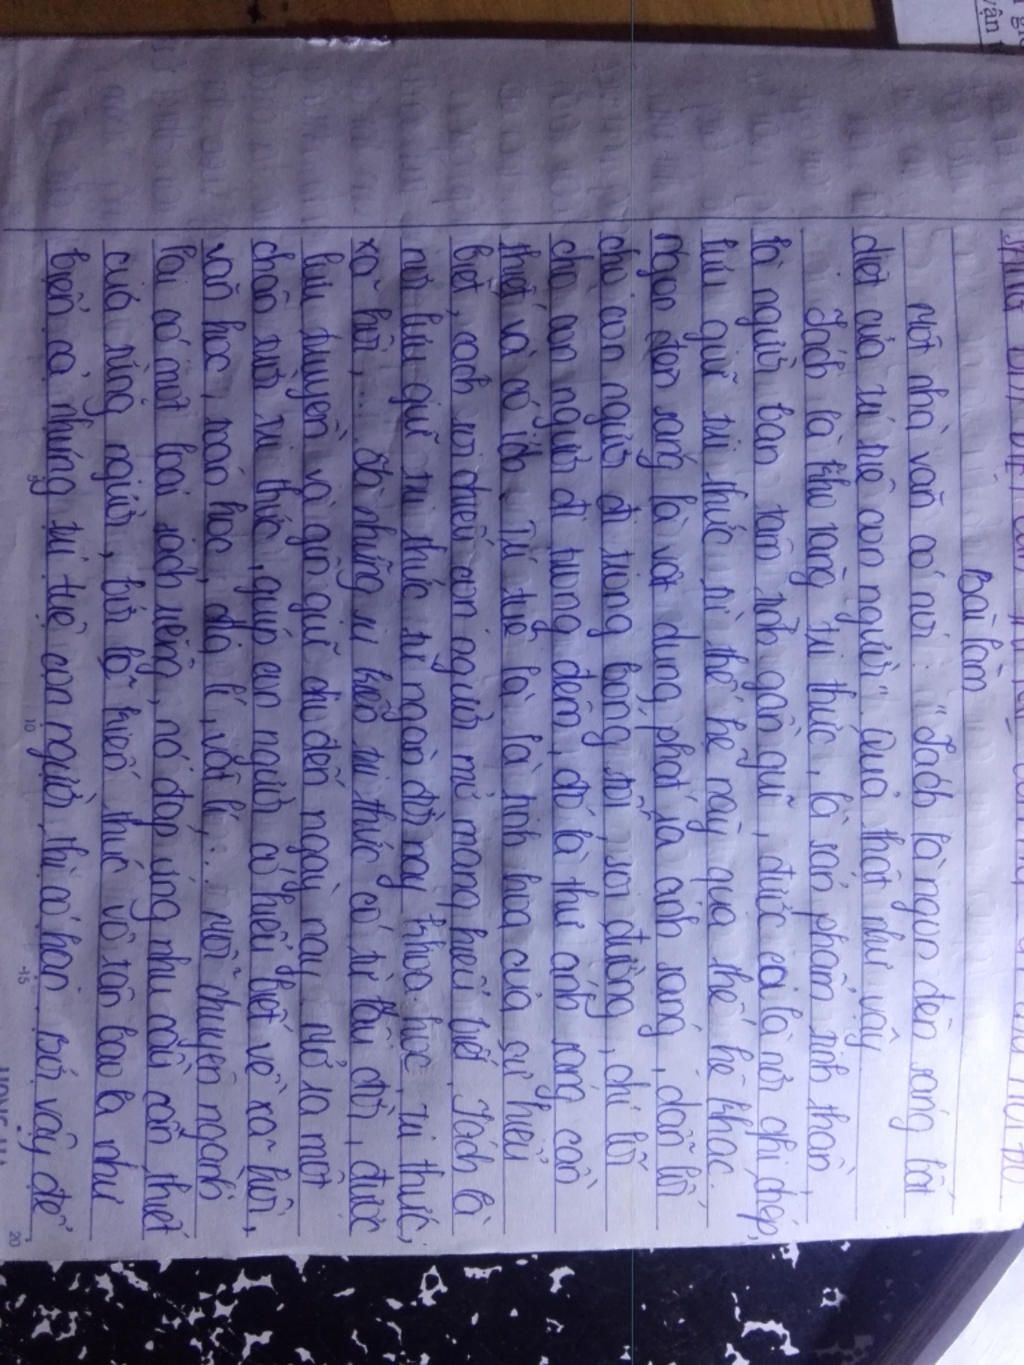 Bài làm
Một nhà văn có nói: "Sách là ngọn đèn sáng bất
diệt của trí tuệ con người". Quả thật như vậy.
Sách là kho tàng tri thức, là sản phẩm tinh thần
là người bạn tâm tình gần gũi, được coi là nơi ghi chép,
lưu giữ tri thức từ thế hệ này qua thế hệ khác.
Ngọn đèn sáng là vật dụng phát ra ánh sáng, dẫn lối
cho con người đi trong bóng tối, soi đường, chỉ lối
cho con người đi trong đêm, đó là thứ ánh sáng cần
thiết và có ích. Trí tuệ là là tinh hoa của sự hiểu
biết, sách soi chiếu con người mở mang hiểu biết. Sách là
nơi lưu giữ tri thức từ ngàn đời nay khoa học, tri thức,
xã hội,... Đó những sự kiện tri thức có từ lâu đời, được
lưu truyền và gìn giữ cho đến ngày nay. Mở ra một
chân trời tri thức, giúp con người có hiểu biết về xã hội,
văn học, toán học, địa lí, vật lí,... Mỗi chuyên ngành
lại có một loại sách riêng, nó đáp ứng nhu cầu cần thiết
của từng người, bởi lẽ kiến thức vô tận bao la như
biển cả, những trí tuệ con người thì có hạn. Bởi vậy để
10
15
20